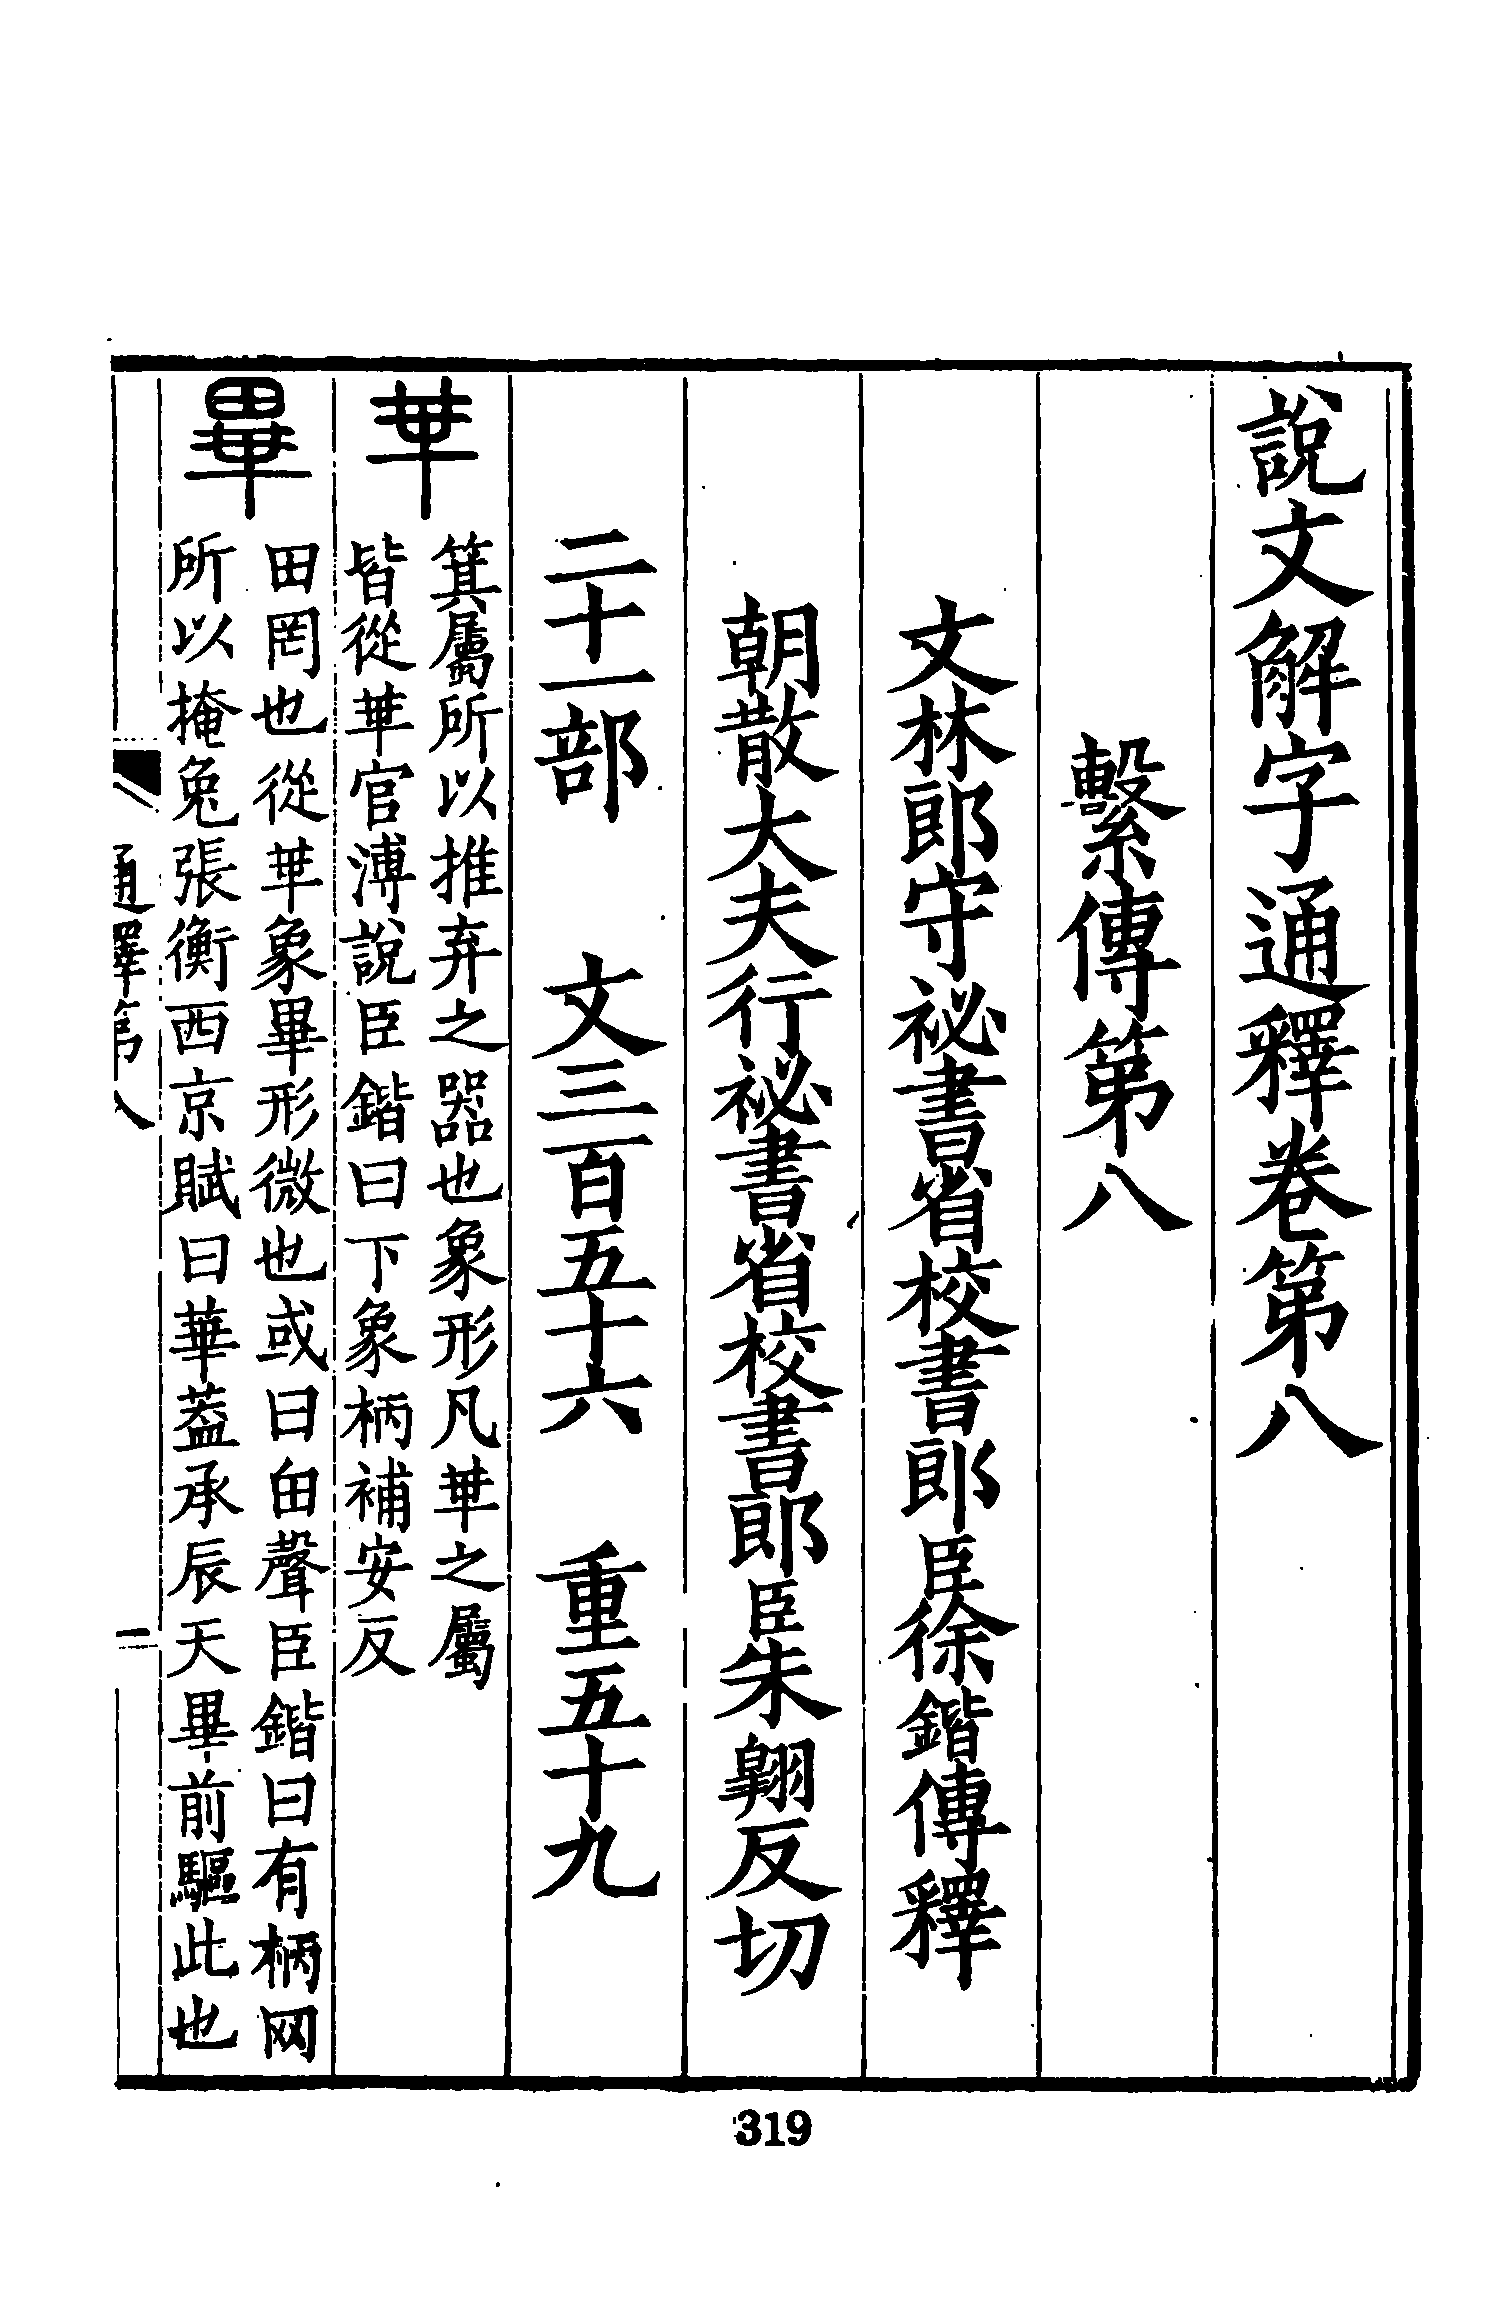 說文解字通釋卷第八
繫傳第八
文林郎守祕書省校書郎臣徐鍇傳釋
朝散大夫行祕書省校書郎臣朱翱反切
二十一部 文三百五十六 重五十九
𠦒
箕屬所以推弃之器也象形凡𠦒之屬
皆從𠦒官溥說臣鍇曰下象柄補安反
畢
田罔也從𠦒象畢形微也或曰甶聲臣鍇曰有柄网
所以掩兔張衡西京賦曰華葢承辰天畢前驅此也
通釋第八
一
319